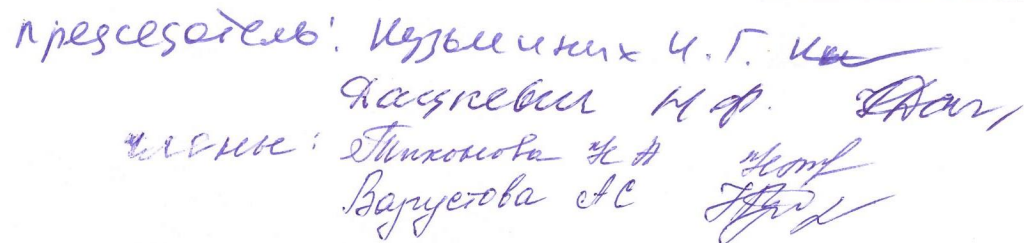 председатель: Кузьминих И. Г.
Дацкевич Н Ф.
члены: Тихонова Н А
Варустова АС